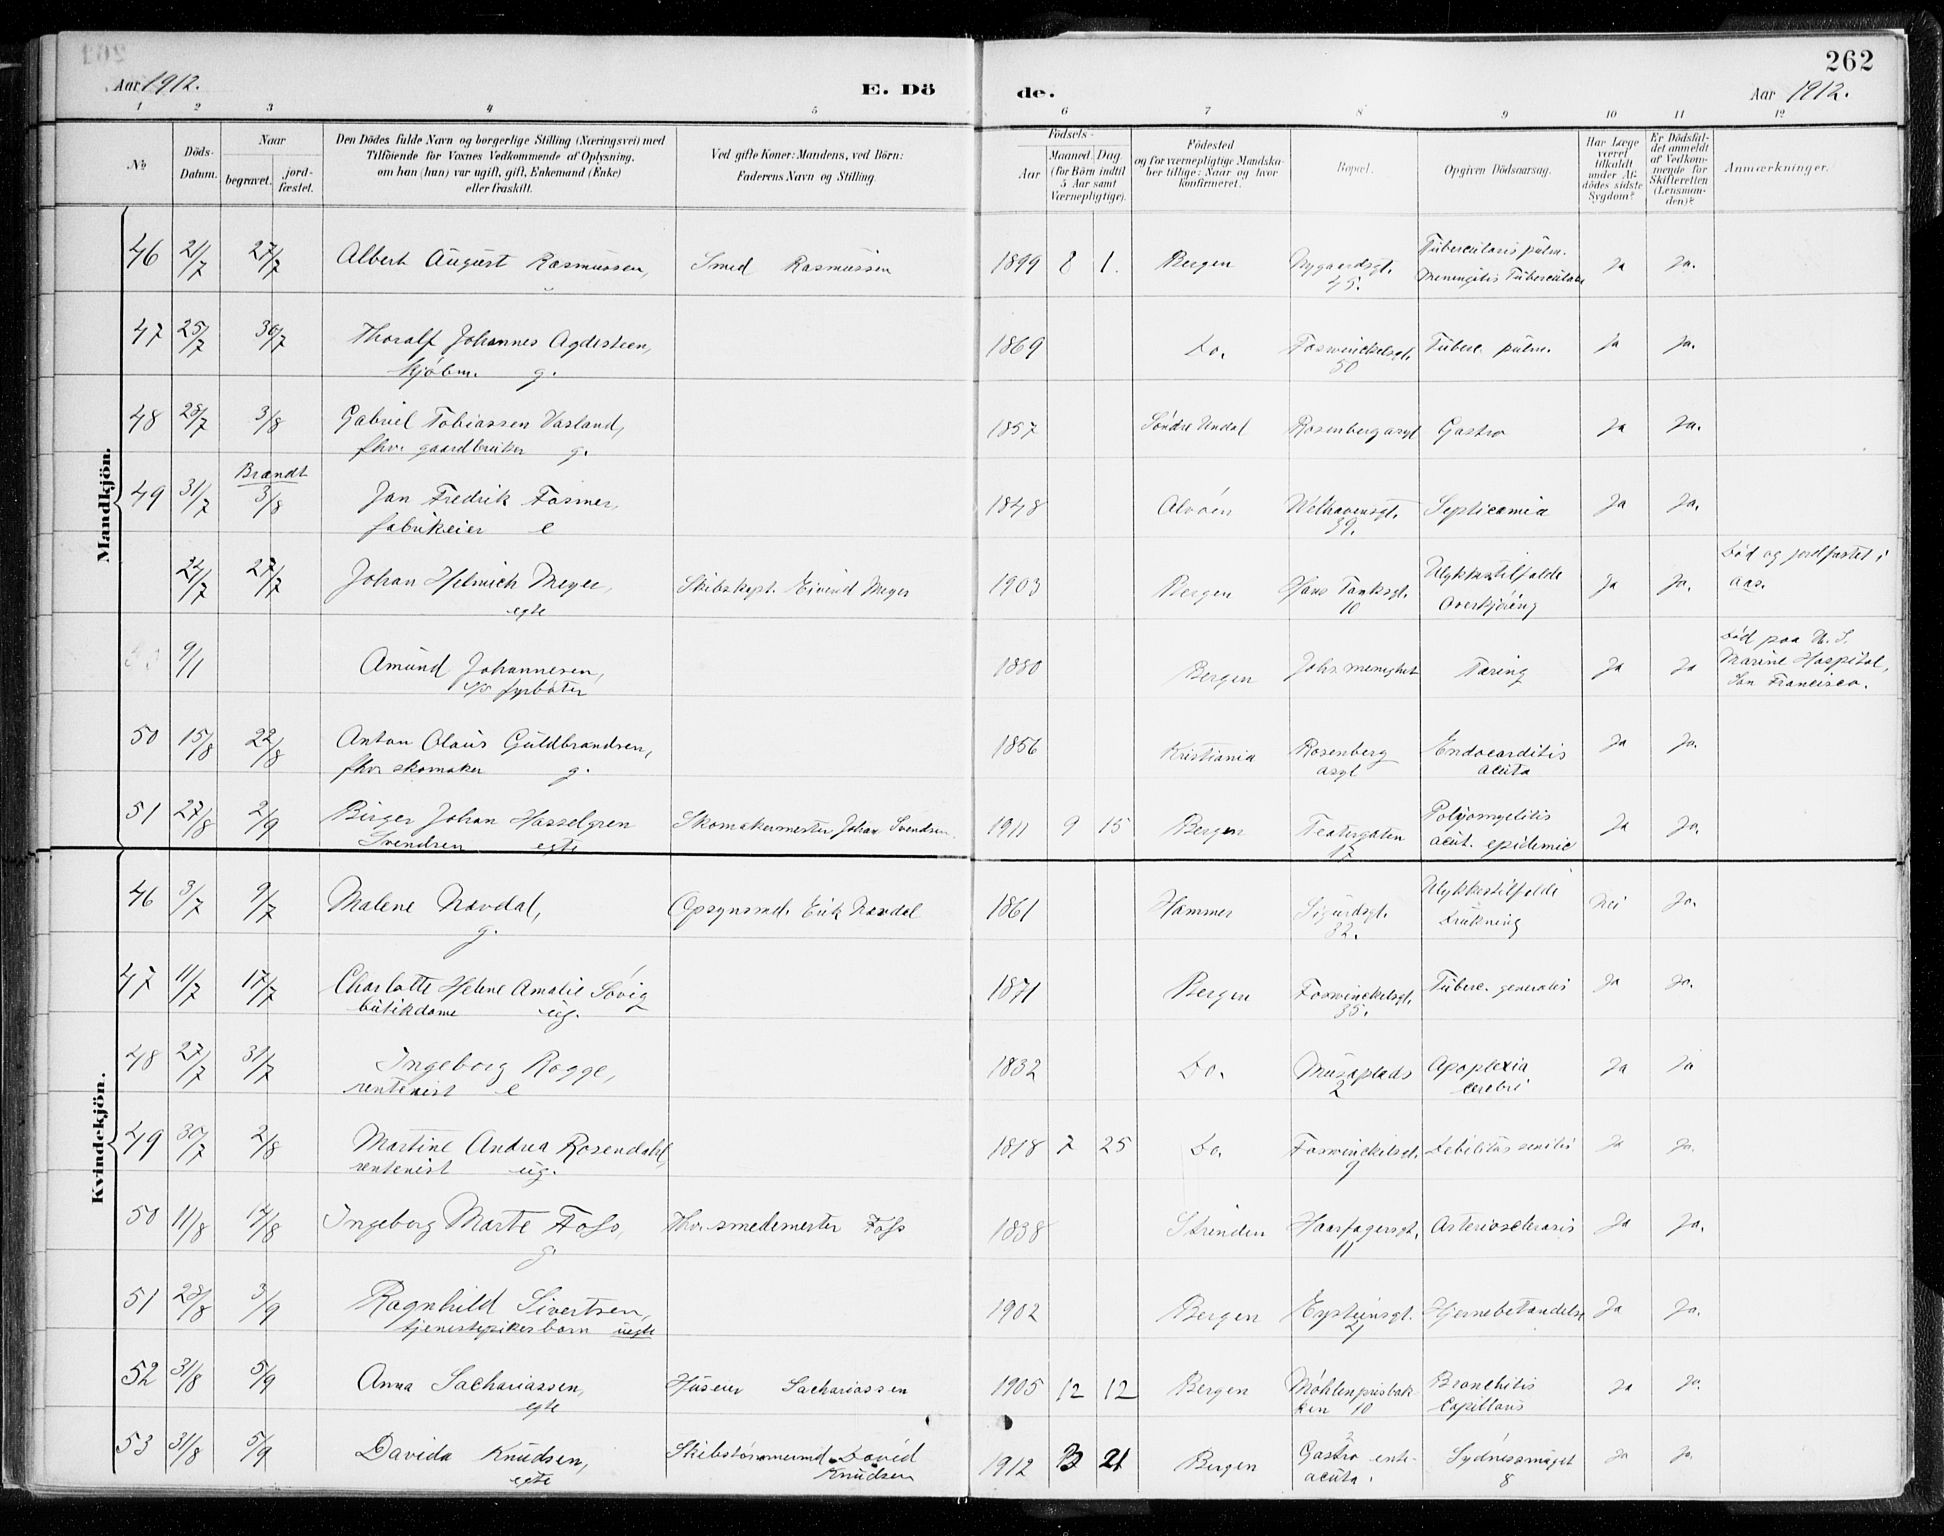 Aar 1912. E. Dö de. Aar 1912. 262
1 2 3 4 5 6 7 8 9 10 11 12
№
Döds-Datum.
Naar
begravet.
jord-fæstet.
Den Dödes fulde Navn og borgerlige Stilling (Næringsvei) med
Tilföiende for Voxnes Vedkommende af Oplysning,
om han (hun) var ugift, gift, Enkemand (Enke)
eller fraskilt.
Ved gifte Koner: Mandens, ved Börn:
Faderens Navn og Stilling.
Födsels-
Aar
Maaned. Dag.
(for Börn indtil
5 Aar samt
Værnepligtige).
Födested
og for værnepligtige Mandska-
ber tillige: Naar og hvor
konfirmeret.
Bopæl.
Opgiven Dödsaarsag.
Har Læge
været
tilkaldt
under Af-
dödes sidste
Sygdom?
Er Dödsfal-
det anmeldt
af Vedkom-
mende for
Skifteretten
(Lensman-
den)?
Anmærkninger.
Mandkjön.
46 21/7 27/7 Albert August Rasmussen, Smed Rasmussen 1899 8 1. Bergen Nygaardsgt. 45. Tuberculosis pulm. Meningitis Tuberculosa Ja Ja.
47 25/7 30/7 Thoralf Johannes Agdesteen, kjøbm. g. 1869 Do. Fosswinckelsgt. 50 Tuberc. pulm. Ja Ja.
48 28/7 3/8 Gabriel Tobiassen Vasland, fhv. gaardbruker g. 1857 Søndre Undal Rosenberg asyl Gastro Ja Ja.
49 31/7 Brændt 3/8 Jan Fredrik Fasmer, fabrikeier e 1848 Alvøen Welhavensgt. 39. Septicæmia Ja Ja.
24/7 27/7 Johan Helmich Meyer, egte Skibskapt. Eivind Meyer 1903 Bergen Hans Tanksgt. 10 Ulykkestilfælde Overkjøring Ja Ja. Død og jordfæstet i Aas.
9/1 Amund Johannesen, fyrbøter 1880 Bergen Johs. menighet Tæring Ja Ja Død paa U. S. Marine Hospital, San Francisco.
50 15/8 22/8 Anton Olaus Guldbrandsen, fhv. skomaker g. 1856 Kristiania Rosenberg asyl Endocarditis acuta Ja Ja.
51 27/8 2/9 Birger Johan Hasselgren Svendsen egte Skomakermester Johan Svendsen. 1911 9 15 Bergen Teatergaten 17 Polyomyelitis acut. epidemic Ja Ja.
Kvindekjön.
46 3/7 9/7 Malene Navdal, g. Opsynsmd. Erik Navdal 1861 Hammer Sigurdsgt. 32. Ulykkestilfælde Drukning Nei Ja.
47 11/7 17/7 Charlotte Helene Amalie Søvig butikdame ug. 1871 Bergen Fosswinckelsgt. 35. Tuberc. generalis Ja Ja.
48 27/7 31/7 Ingeborg Rogge, rentenist e 1832 Do. Musæplads 2 Apoplexia cerebri Ja Ja
49 30/7 2/8 Martine Andrea Rosendahl, rentenist ug. 1818 7 25 Do. Fosswinckelsgt. 9 Debilitas senilis Ja Ja.
50 11/8 17/8 Ingeborg Marte Foss, g. Fhv. smedemester Foss 1838 Strinden Haarfagersgt. 11 Arteriosclerosis Ja Ja.
51 28/8 3/9 Ragnhild Sivertsen, tjenestepikesbarn uegte 1902 Bergen Eysteinsgt. Hjernebetændelse Ja Ja.
52 31/8 5/9 Anna Sachariassen, egte Huseier Sachariassen 1905 12 12 Bergen Møhlenprisbakken 10 Bronchitis Capillaris Ja Ja.
53 31/8 5/9 Davida Knudsen, egte Skibstømmermd David Knudsen 1912 3 21 Bergen Gastro ent- acuta. Sydnessmuget 8 Ja Ja.